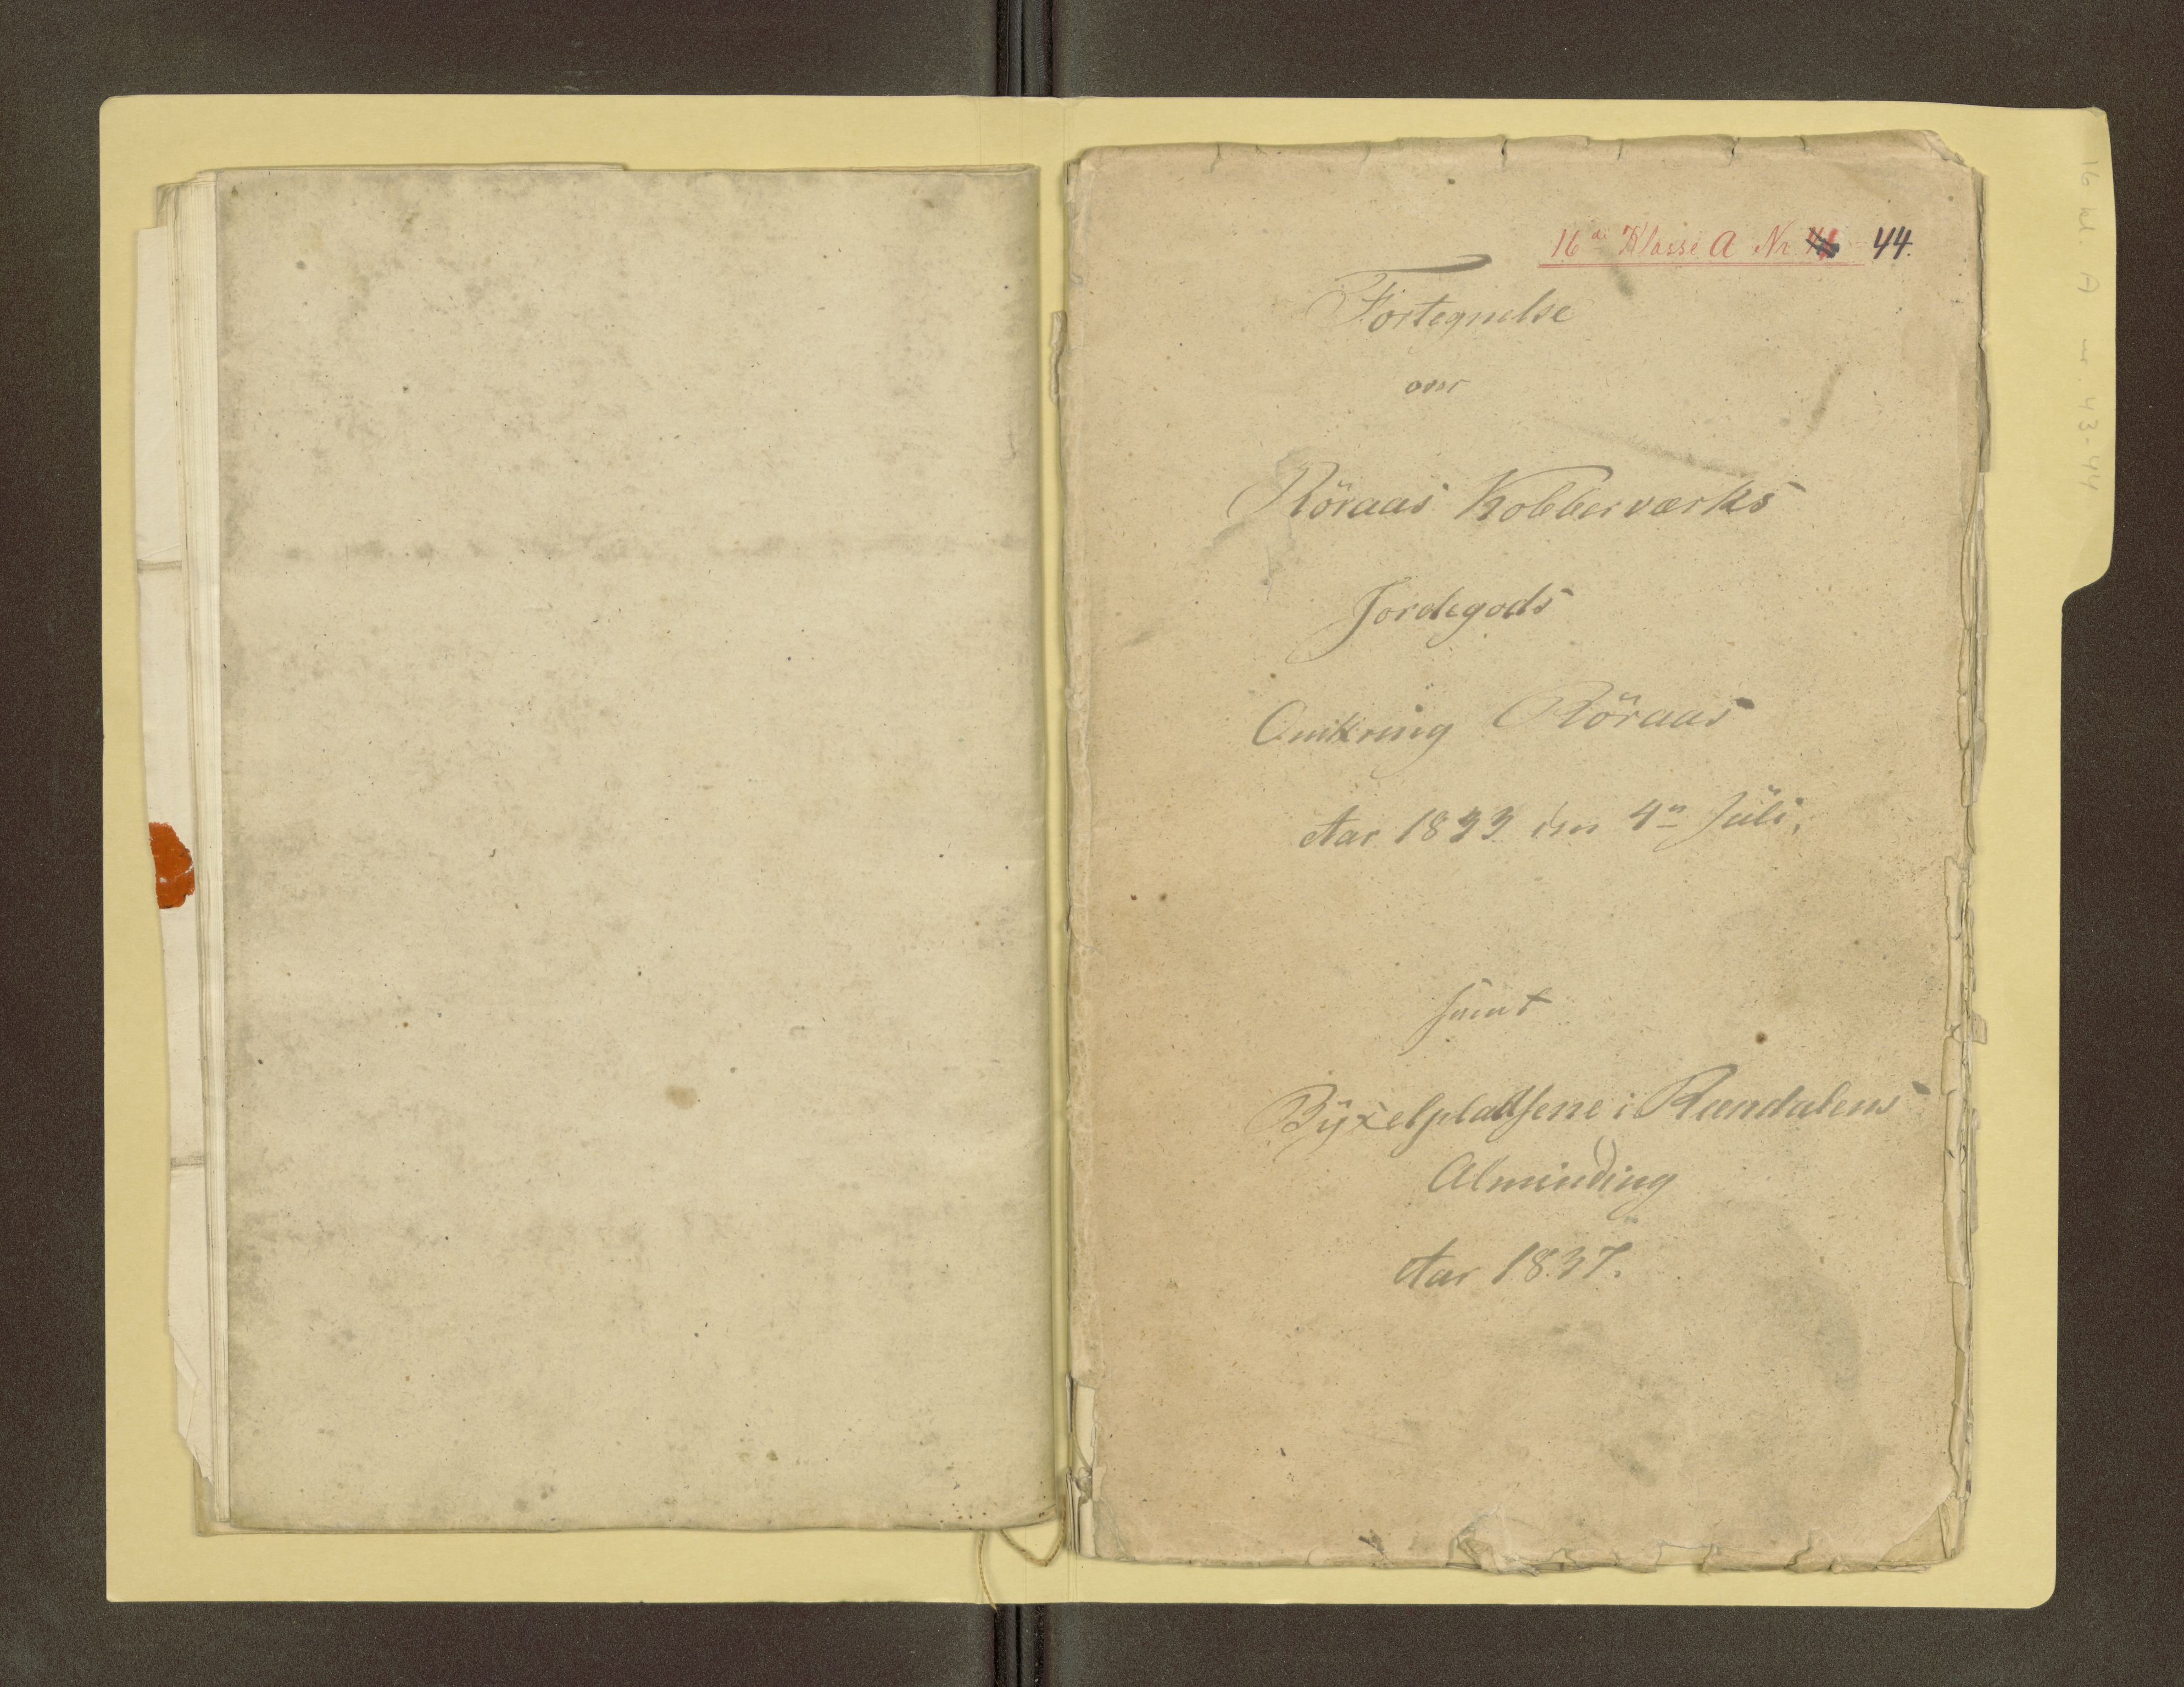 16de Klasse A Nr 44.
Fortegnelse
over
Röraas Kobberværks
Jordegods
Omkring Röraas
Aar 1833 den 4n Juli,
samt
Byxelplattsene i Rendalens
Alminding
Aar 1837.
16 kl. A nr. 43-44